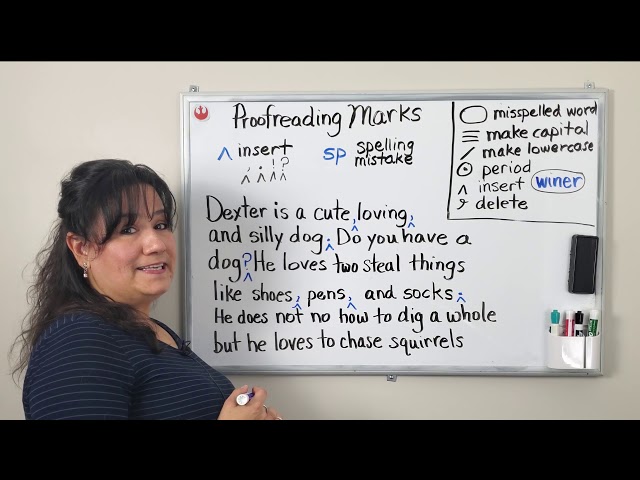 Proofreading Marks
^ insert
, . ! ?
^ ^ ^ ^
sp spelling
mistake
misspelled word
make capital
make lowercase
period
^ insert winer
delete
Dexter is a cute, loving,
and silly dog. Do you have a
dog? He loves two steal things
like shoes, pens, and socks.
He does not no how to dig a whole
but he loves to chase squirrels